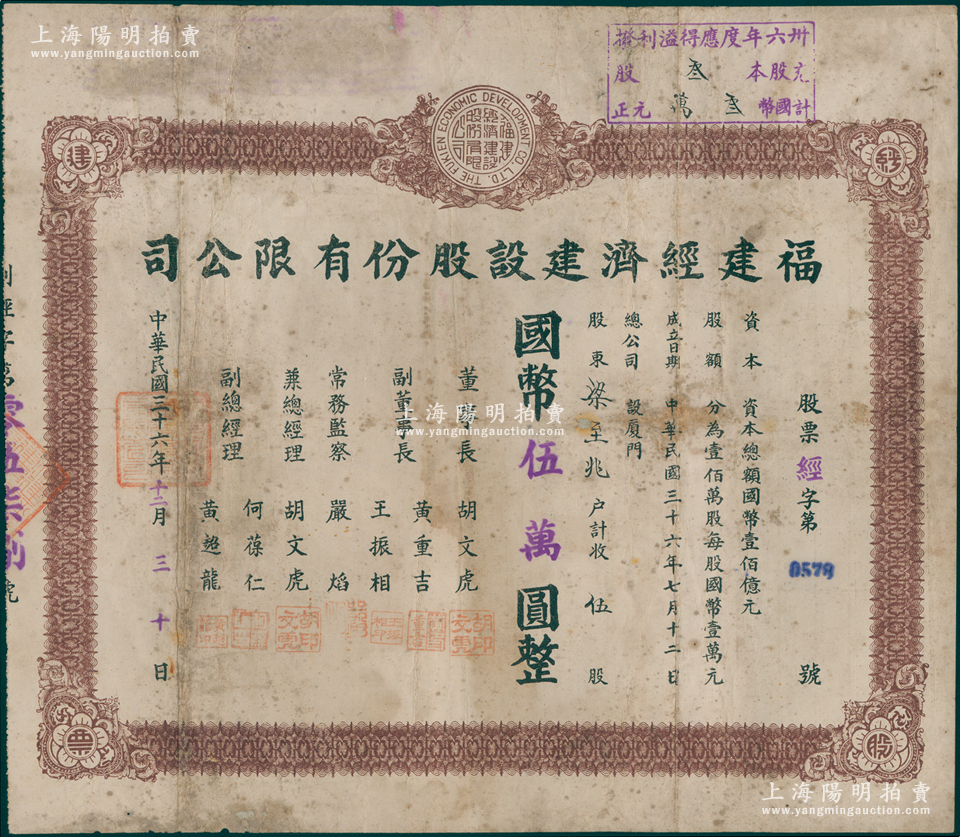 上海陽明拍賣
www.yangmingauction.com
卅六年度應得溢利撥
充股本叁股
計國幣叁萬元正
THE FUKIEN ECONOMIC DEVELOPMENT CO. LTD.
福建經濟建設股份有限公司
福建經濟建設股份有限公司
股票經字第0579號
資本 資本總額國幣壹佰億元
股額 分為壹佰萬股每股國幣壹萬元
成立日期 中華民國三十六年七月十二日
總公司 設厦門
股東梁至兆户計收伍股
國幣伍萬圓整
董事長 胡文虎
副董事長 黃重吉
王振相
常務監察 嚴焰
兼總經理 胡文虎
副總經理 何葆仁
黃超龍
中華民國三十六年十二月三十日
上海陽明拍賣
www.yangmingauction.com
經
建
股
票
上海陽明拍賣
www.yangmingauction.com